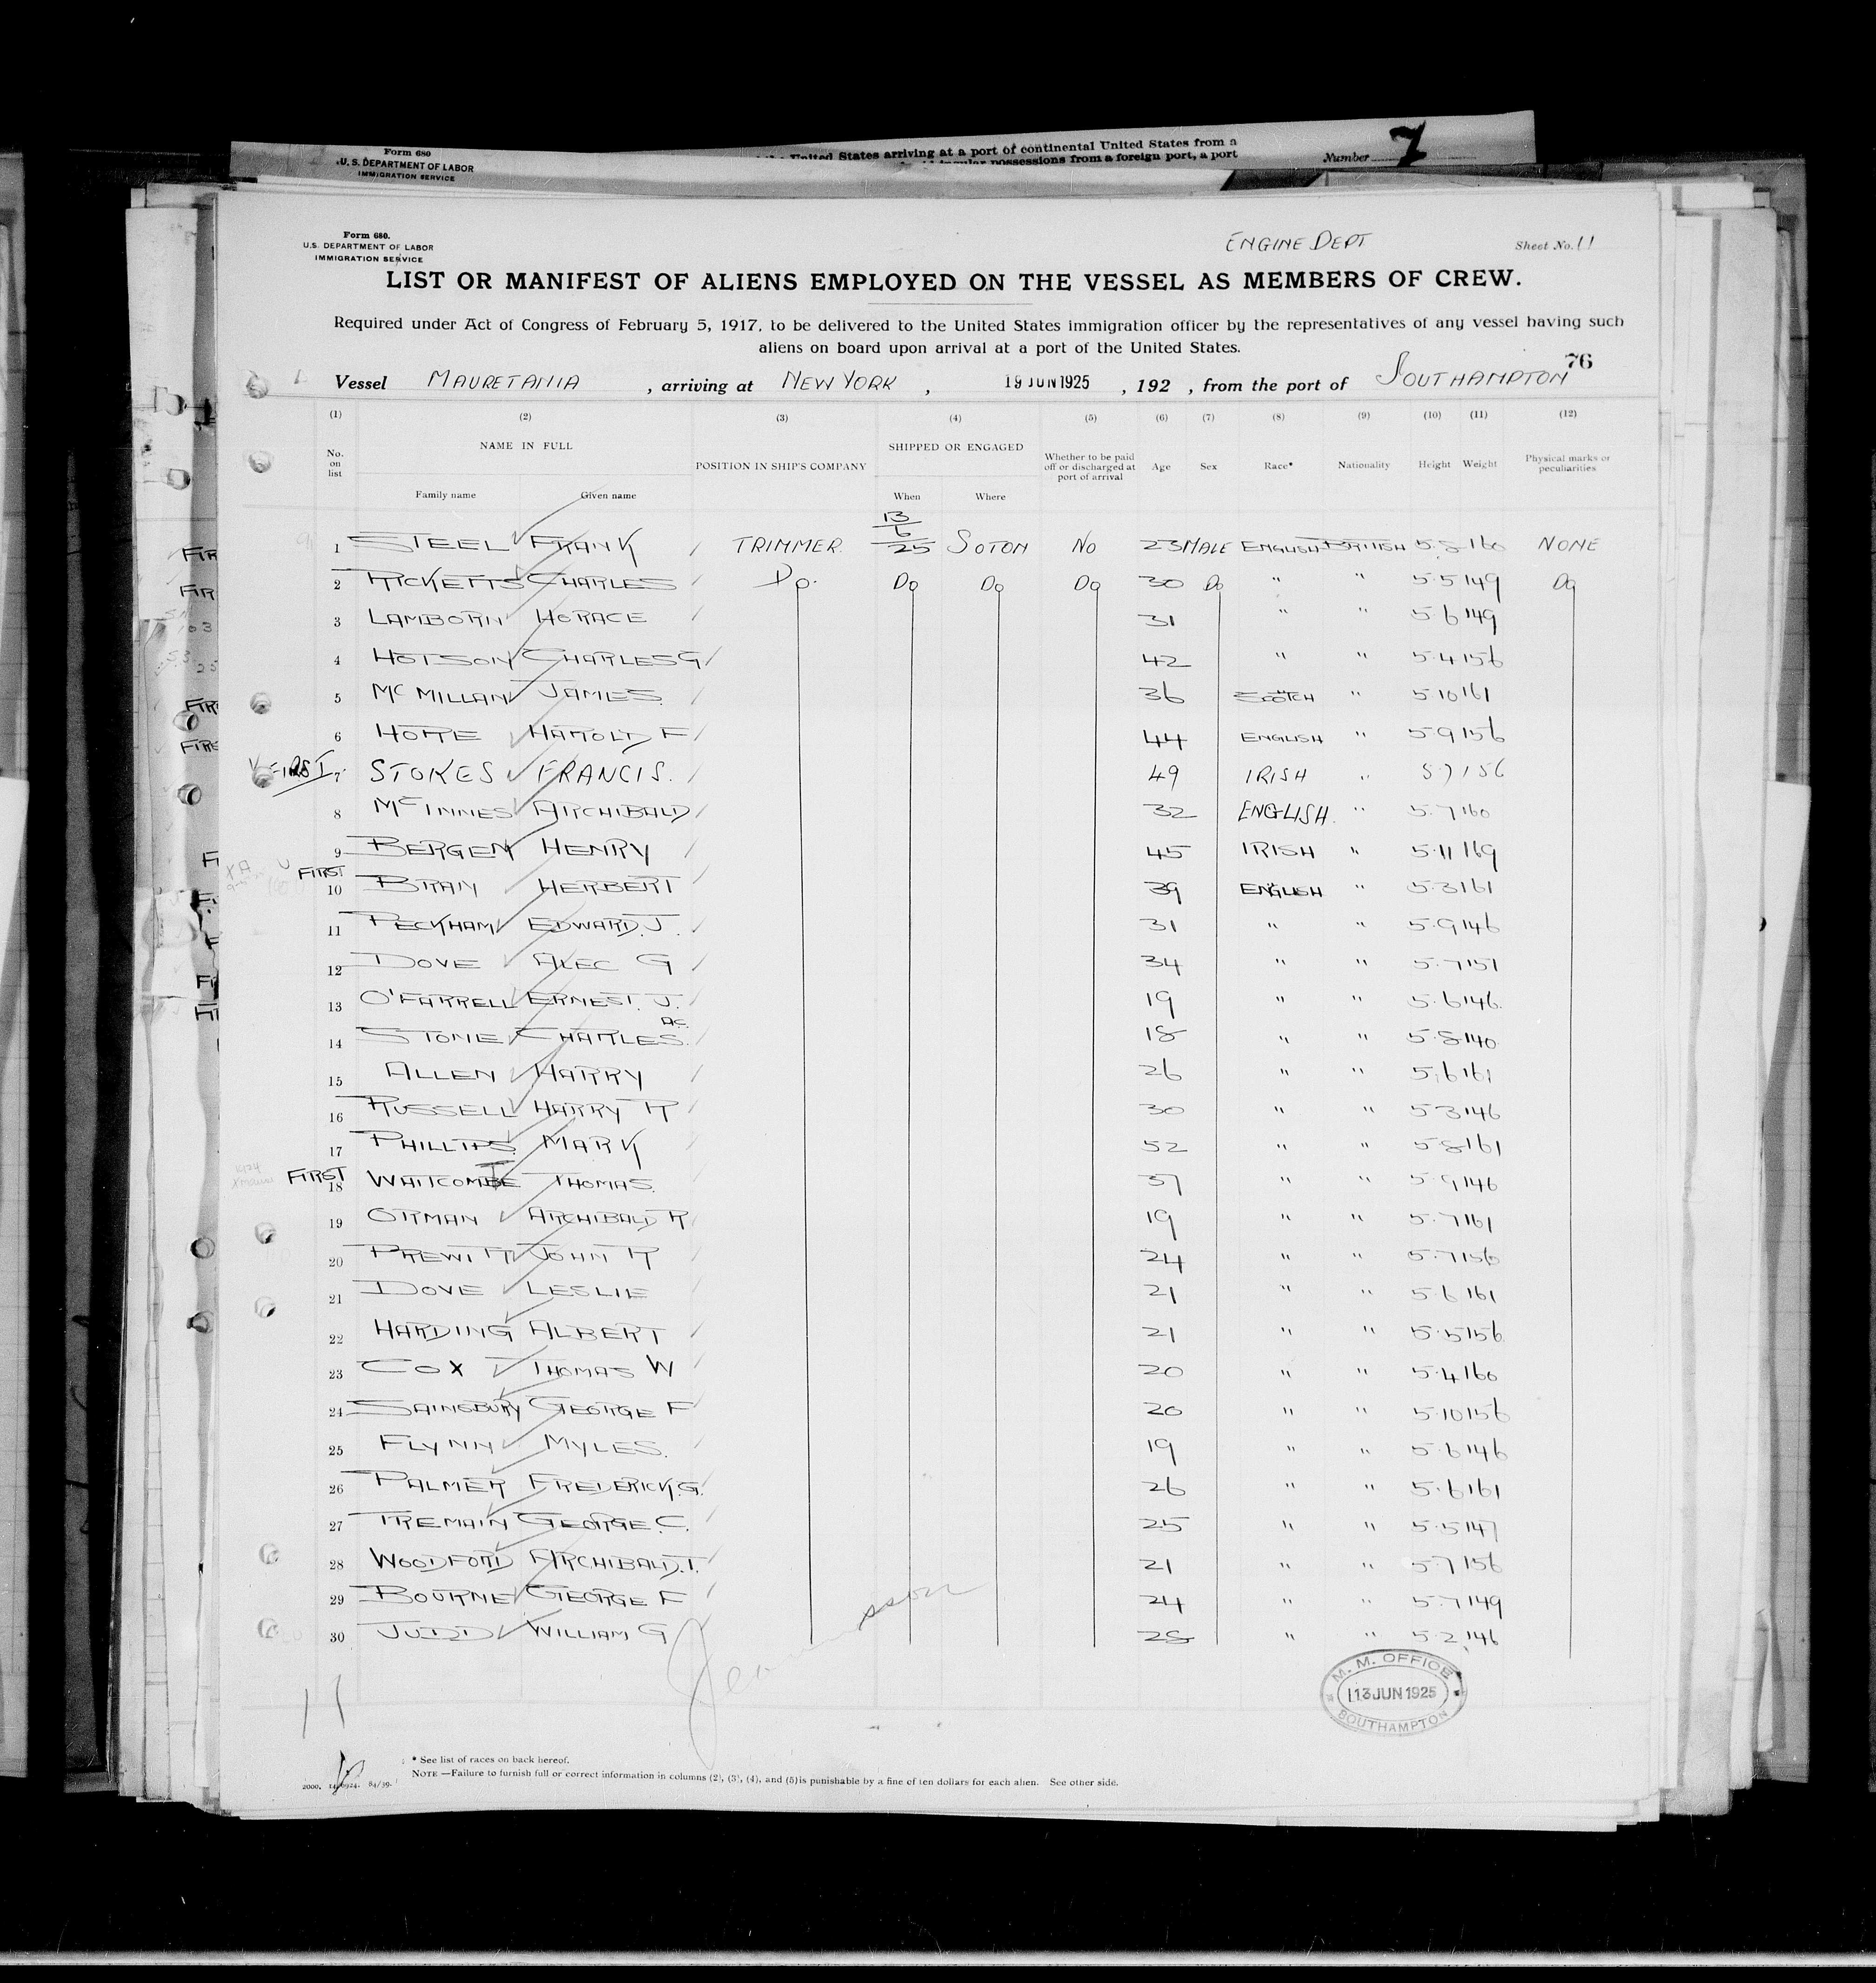 Form 680
U. S. DEPARTMENT OF LABOR
IMMIGRATION SERVICE
United States arriving at a port of continental United States from a
possessions from a foreign port, a port
Number 7
Form 680.
U.S. DEPARTMENT OF LABOR
IMMIGRATION SERVICE
ENGINE DEPT
Sheet No. 11
LIST OR MANIFEST OF ALIENS EMPLOYED ON THE VESSEL AS MEMBERS OF CREW.
Required under Act of Congress of February 5, 1917, to be delivered to the United States immigration officer by the representatives of any vessel having such
aliens on board upon arrival at a port of the United States.
76
Vessel MAURETANIA , arriving at NEW YORK , 19 JUN 1925 , 192 , from the port of SOUTHAMPTON
(1) (2) (3) (4) (5) (6) (7) (8) (9) (10) (11) (12)
No. on list NAME IN FULL POSITION IN SHIP'S COMPANY SHIPPED OR ENGAGED Whether to be paid off or discharged at port of arrival Age Sex Race* Nationality Height Weight Physical marks or peculiarities
Family name Given name When Where
1 STEEL FRANK TRIMMER. 13/6/25 SOTON NO 23 MALE ENGLISH BRITISH 5.8 160 NONE
2 RICKETTS CHARLES Do. Do Do Do 30 Do " " 5.5 149 Do
3 LAMBORN HORACE 31 " " 5.6 149
4 HOTSON CHARLES G 42 " " 5.4 156
5 McMILLAN JAMES 36 SCOTCH " 5.10 161
6 HORE HAROLD F 44 ENGLISH " 5.9 156
FIRST 7 STOKES FRANCIS. 49 IRISH " 5 7 156
8 McINNES ARCHIBALD 32 ENGLISH. " 5.7 160
9 BERGEN HENRY 45 IRISH " 5.11 169
FIRST 10 BRAN HERBERT 39 ENGLISH " 5.3 161
11 PECKHAM EDWARD. J. 31 " " 5.9 146
12 DOVE ALEC G 34 " " 5.7 151
13 O'FARRELL ERNEST. J. 19 " " 5.6 146
14 STONE CHARLES. A.C. 18 " " 5.8 140
15 ALLEN HARRY 26 " " 5.6 161
16 RUSSELL HARRY R 30 " " 5 3 146
17 PHILLIPS MARK 52 " " 5.8 161
FIRST 18 WHITCOMBE THOMAS. 37 " " 5.9 146
19 ORMAN ARCHIBALD R 19 " " 5.7 161
20 PREWITT JOHN R 24 " " 5.7 156
21 DOVE LESLIE 21 " " 5.6 161
22 HARDING ALBERT 21 " " 5.5 156
23 COX THOMAS W 20 " " 5.4 160
24 SAINSBURY GEORGE F 20 " " 5.10 156
25 FLYNN MYLES. 19 " " 5.6 146
26 PALMER FREDERICK. G. 26 " " 5.6 161
27 TREMAIN GEORGE. C. 25 " " 5.5 147
28 WOODFORD ARCHIBALD. T. 21 " " 5.7 156
29 BOURNE GEORGE F 24 " " 5.7 149
30 JUDD WILLIAM G 28 " " 5.2 146
M. M. OFFICE
13 JUN 1925
SOUTHAMPTON
11
* See list of races on back hereof.
NOTE —Failure to furnish full or correct information in columns (2), (3), (4), and (5) is punishable by a fine of ten dollars for each alien. See other side.